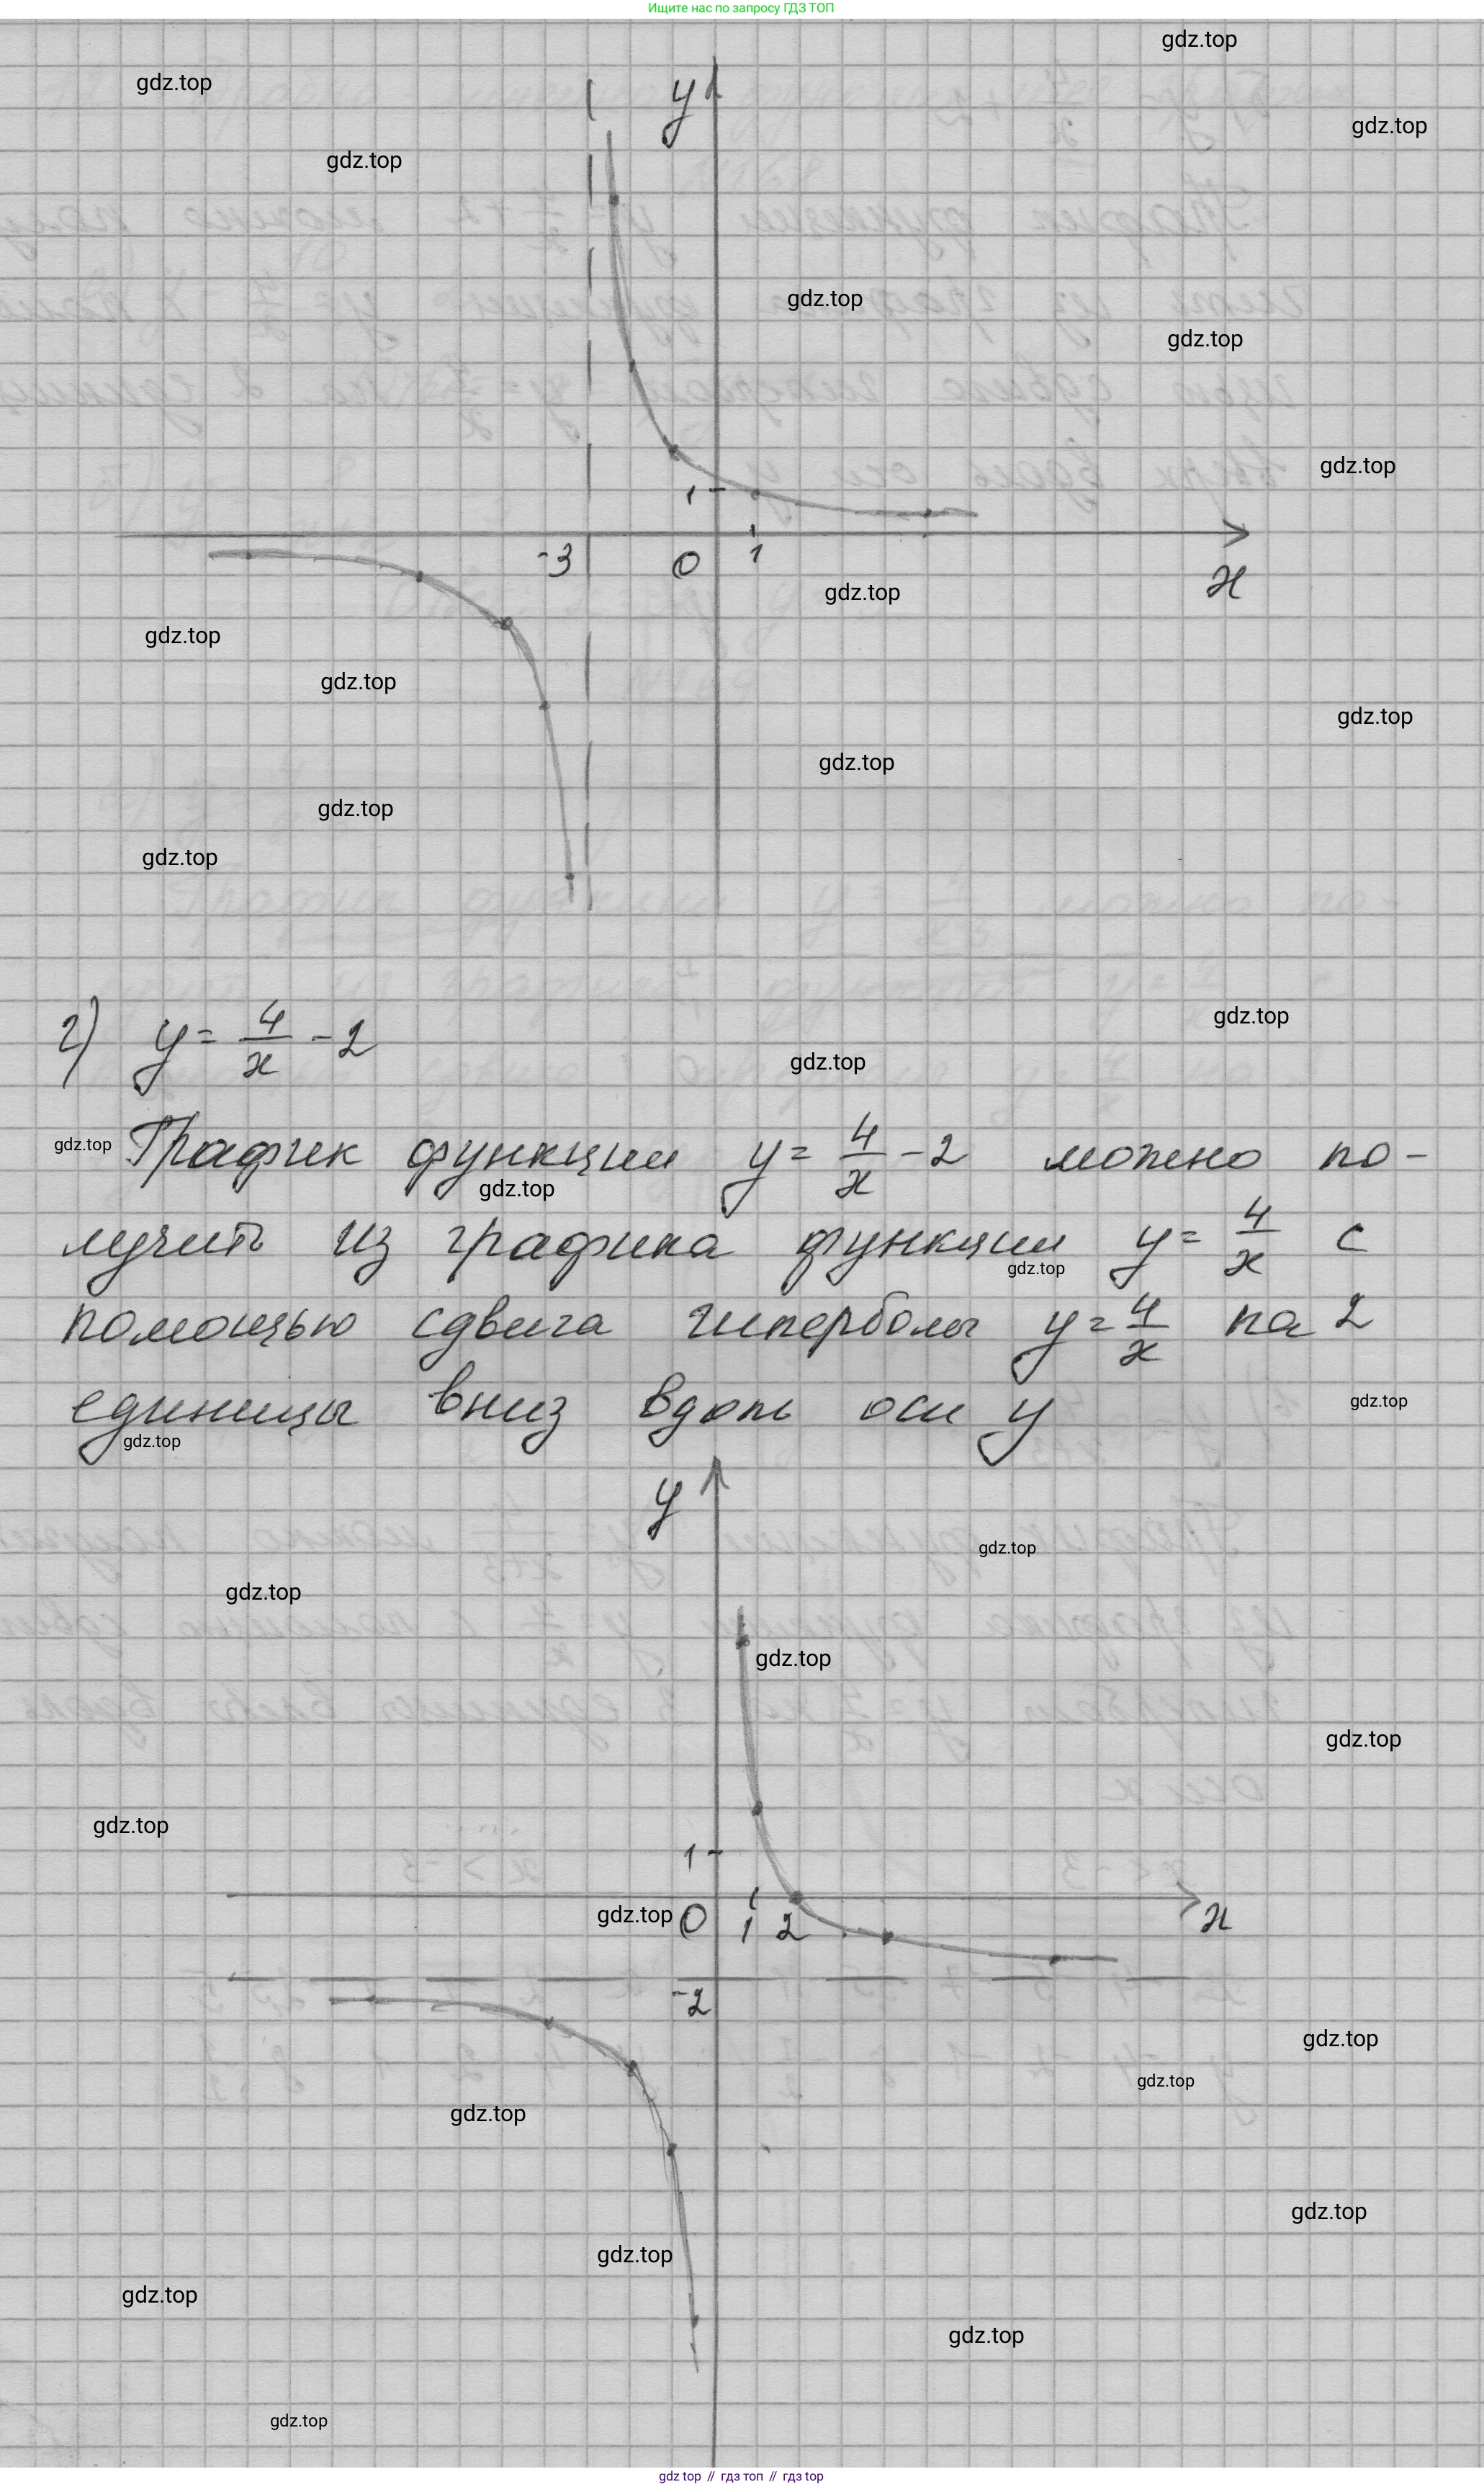 Ищите нас по запросу ГДЗ ТОП
gdz.top
gdz.top
gdz.top
gdz.top
y
gdz.top
gdz.top
gdz.top
1
-3 0 1
x
gdz.top
gdz.top
gdz.top
gdz.top
gdz.top
gdz.top
gdz.top
г) y = 4/x - 2
gdz.top
gdz.top
График функции y = 4/x - 2 можно по-
gdz.top
gdz.top
лучить из графика функции y = 4/x с
gdz.top
помощью сдвига гиперболы y = 4/x на 2
единицы вниз вдоль оси y
gdz.top
gdz.top
y
gdz.top
gdz.top
gdz.top
gdz.top
gdz.top
1
gdz.top 0 1 2 x
-2
gdz.top
gdz.top
gdz.top
gdz.top
gdz.top
gdz.top
gdz.top
gdz.top
gdz top // гдз топ // гдз top